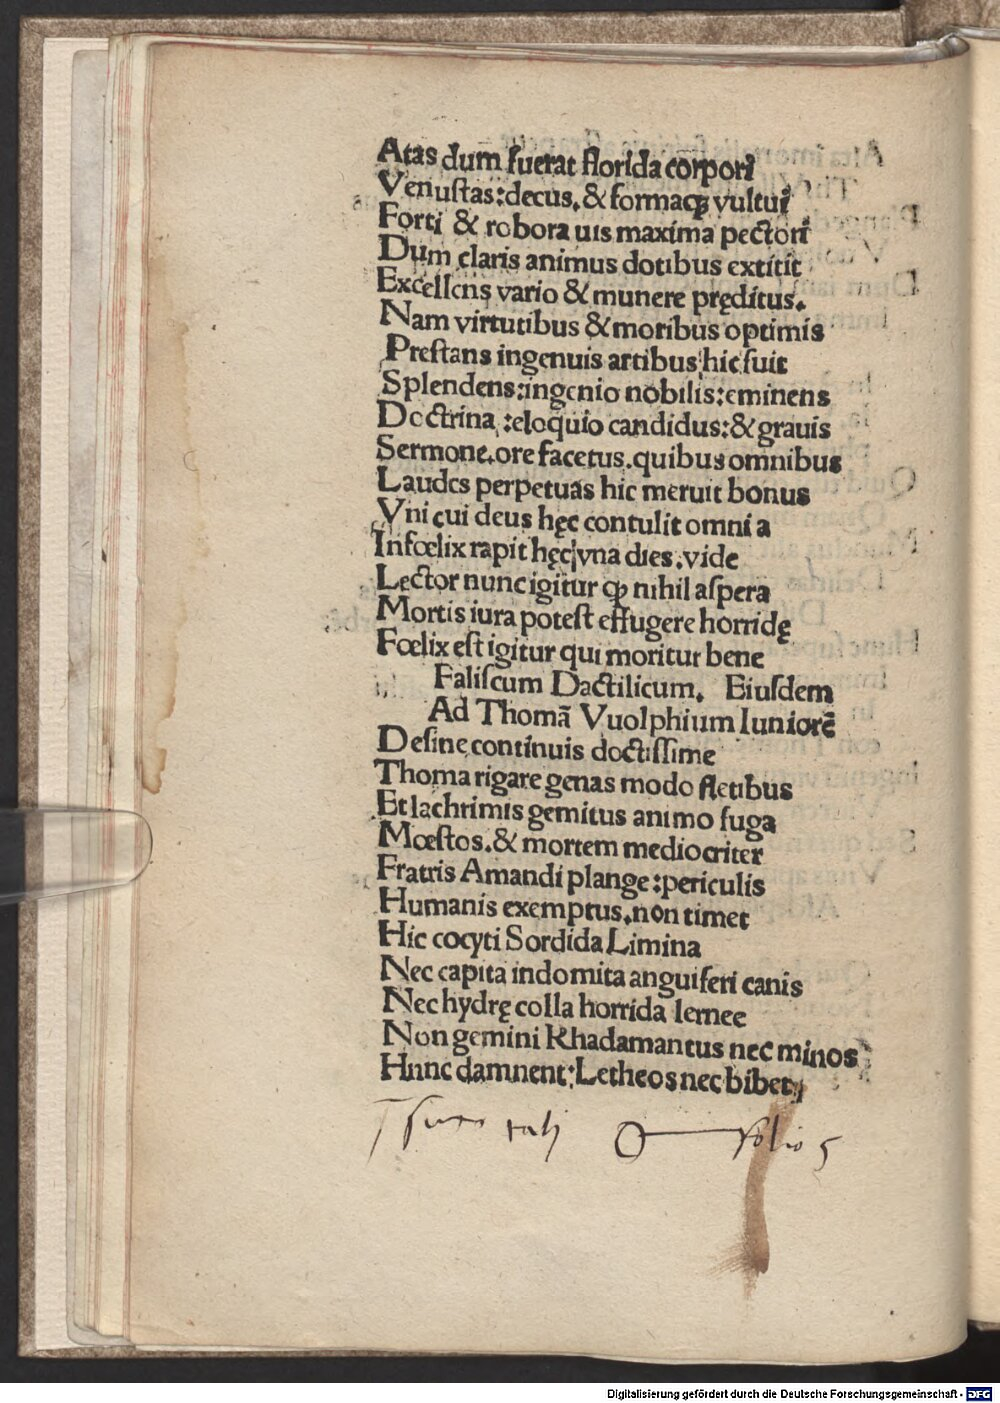 Atas dum fuerat florida corpori
Venustas:decus.& formaqꝫ vultui
Forti & robora uis maxima pectori
Dum claris animus dotibus extitit
Excellens vario & munere pręditus.
Nam virtutibus & moribus optimis
Prestans ingenuis artibus hic fuit
Splendens:ingenio nobilis:eminens
Doctrina :eloquio candidus:& grauis
Sermone.ore facetus.quibus omnibus
Laudes perpetuas hic meruit bonus
Vni cui deus hęc contulit omnia
Infœlix rapit hęc vna dies.vide
Lector nunc igitur ꝙ nihil aspera
Mortis iura potest effugere horridę
Fœlix est igitur qui moritur bene
Faliscum Dactilicum. Eiusdem
Ad Thomā Vuolphium Iuniorē
Desine continuis doctissime
Thoma rigare genas modo fletibus
Et lachrimis gemitus animo fuga
Mœstos.& mortem mediocriter
Fratris Amandi plange:periculis
Humanis exemptus.non timet
Hic cocyti Sordida Limina
Nec capita indomita anguiferi canis
Nec hydrę colla horrida lernee
Non gemini Rhadamantus nec minos
Hunc damnent:Letheos nec bibet
folio 5
Digitalisierung gefördert durch die Deutsche Forschungsgemeinschaft - DFG